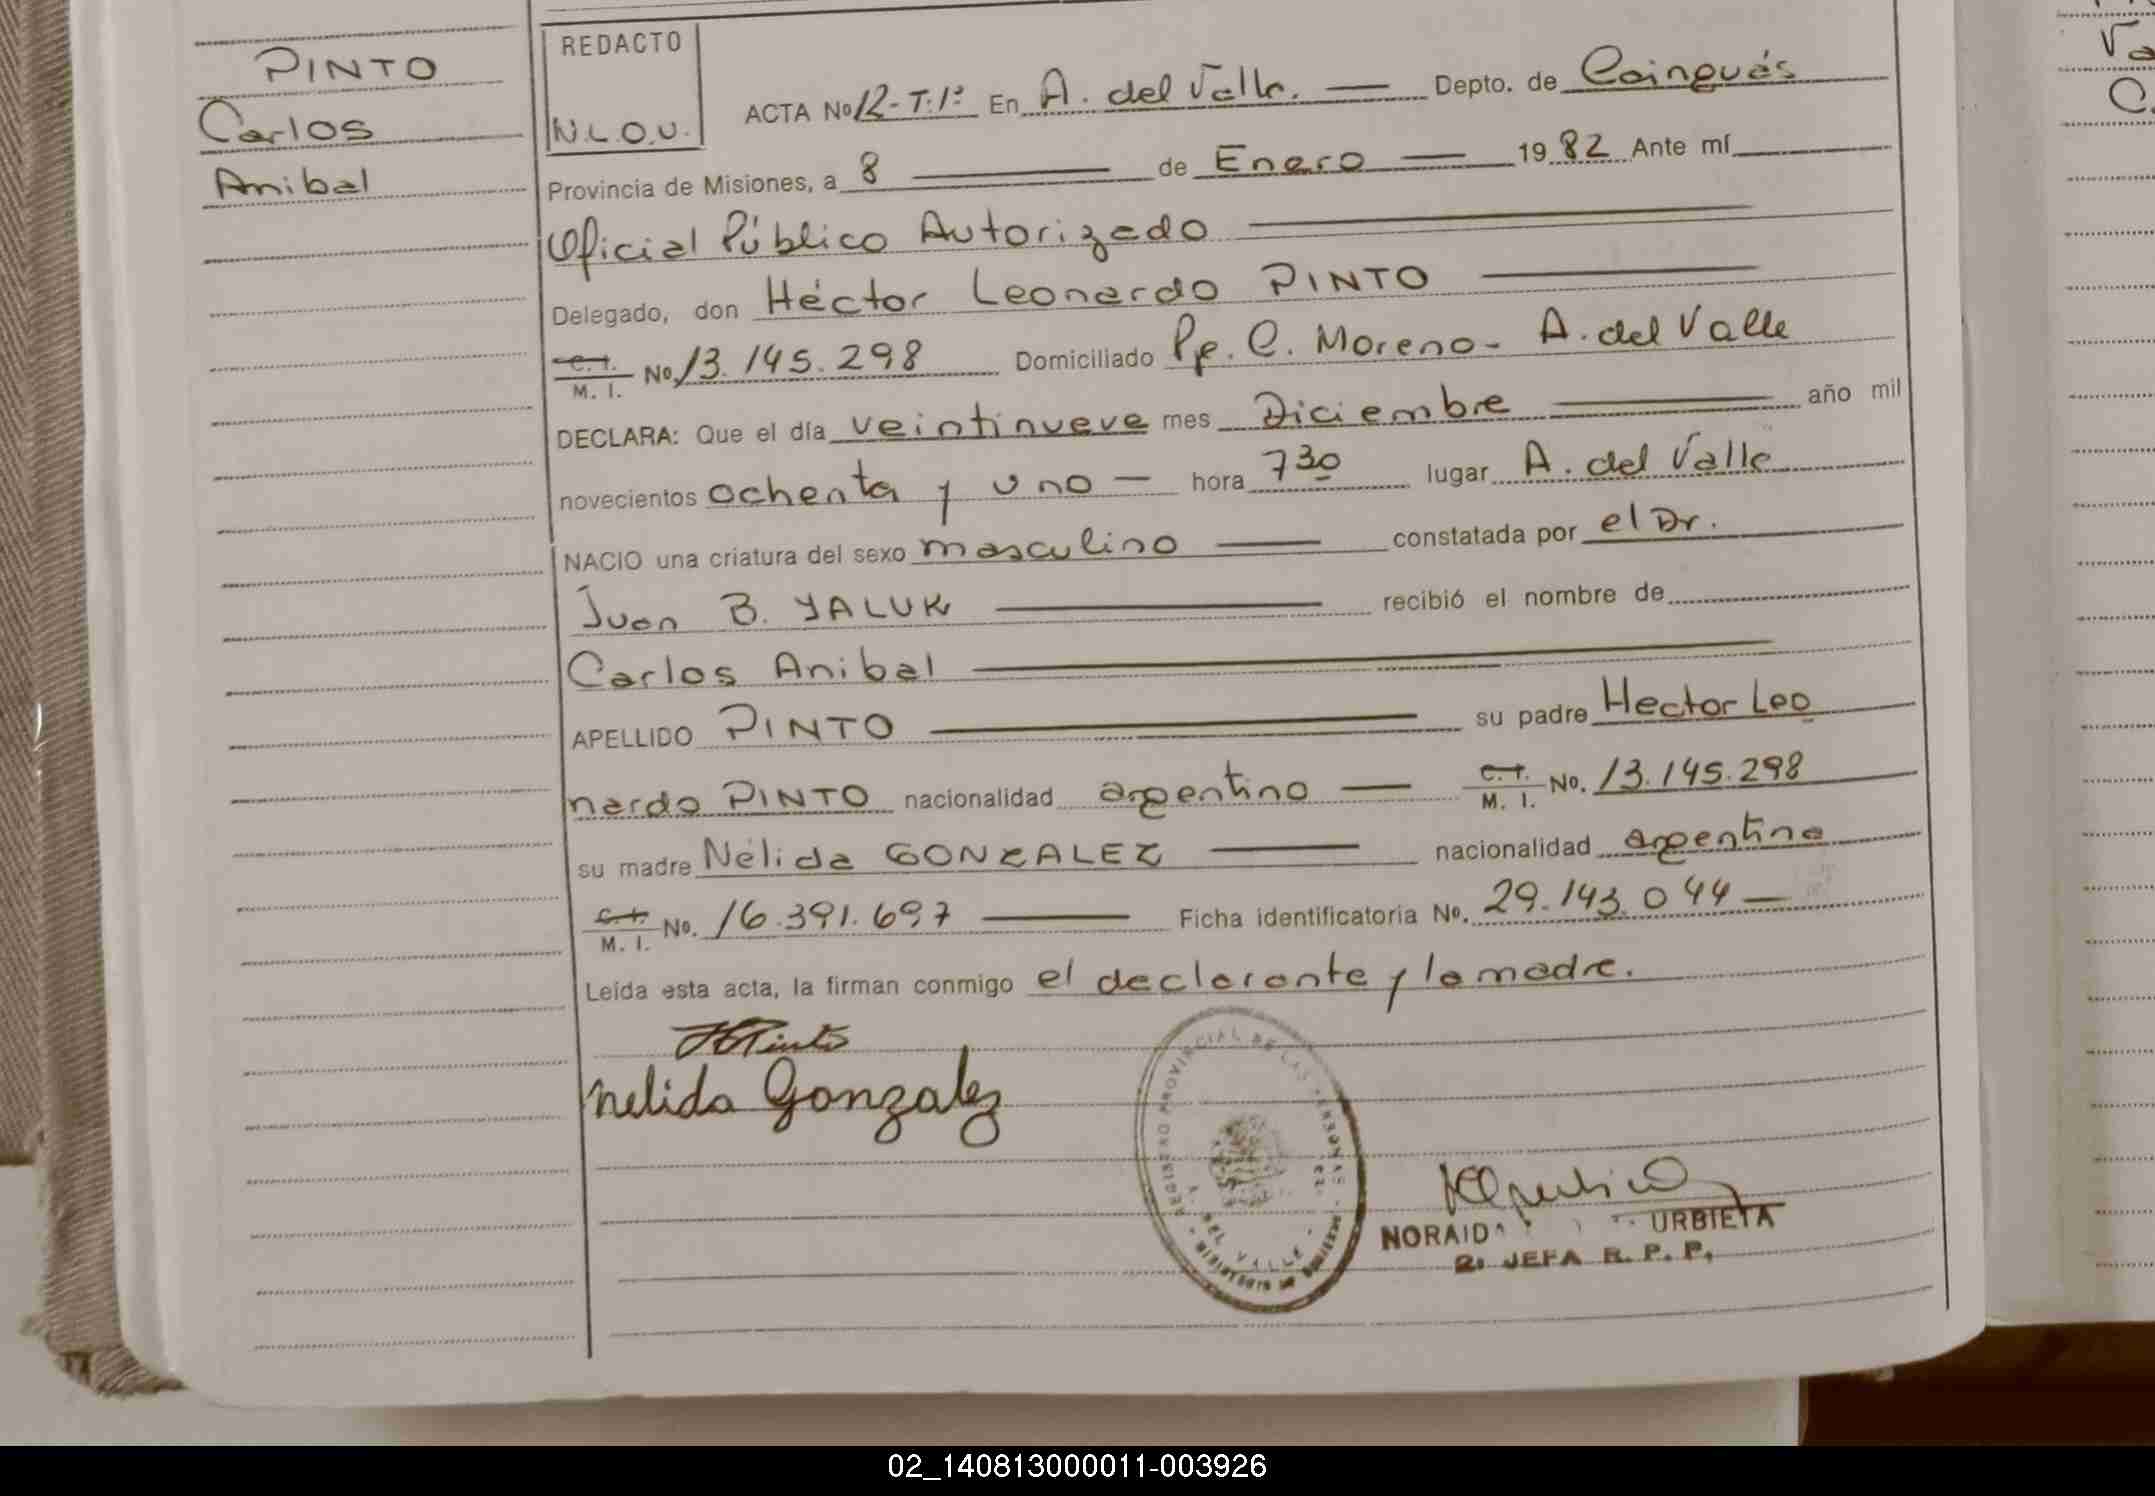 PINTO
Carlos
Anibal
REDACTO
N.L.O.U.
ACTA No 12-T.1º En A. del Valle. Depto. de Cainguás
Provincia de Misiones, a 8 de Enero 1982 Ante mí
Oficial Público Autorizado
Delegado, don Héctor Leonardo PINTO
C. I. M. I. No 13.145.298 Domiciliado Pje. C. Moreno- A. del Valle
DECLARA: Que el día veintinueve mes Diciembre año mil
novecientos ochenta y uno hora 7 30 lugar A. del Valle
NACIO una criatura del sexo masculino constatada por el Dr.
Juan B. YALUK recibió el nombre de
Carlos Anibal
APELLIDO PINTO su padre Hector Leo
nardo PINTO nacionalidad argentino C. I. M. I. No. 13.145.298
su madre Nélida GONZALEZ nacionalidad argentina
C. I. M. I. No. 16.391.697 Ficha identificatoria No. 29.143.044
Leída esta acta, la firman conmigo el declarante y la madre.
HPinto
Nelida Gonzalez
REGISTRO PROVINCIAL DE LAS PERSONAS
A. DEL VALLE
MINISTERIO DE GOBIERNO
NORAIDA URBIETA
2ª JEFA R. P. P.
Va
C.
02_140813000011-003926